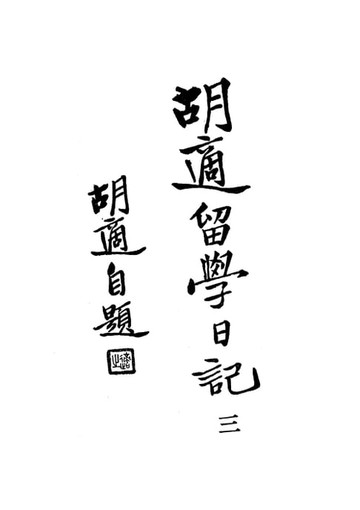 胡適留學日記
三
胡適自題
適之